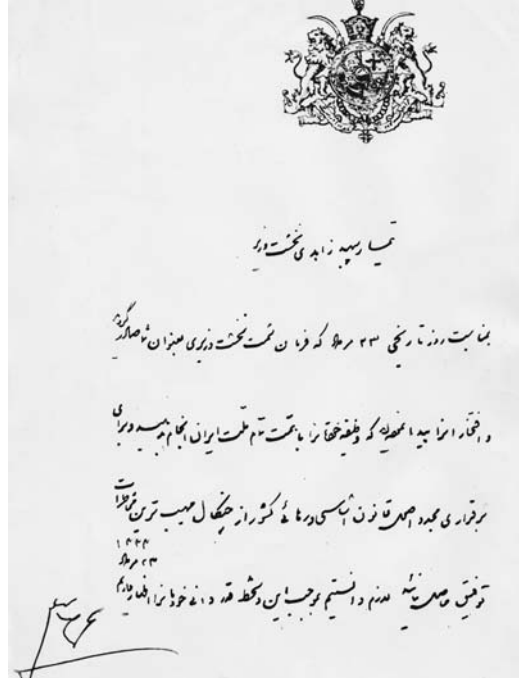 تیمسار سپهبد زاهدی نخست وزیر
بمناسبت روز تاریخی ۲۳ مرداد که فرمان سمت نخست وزیری بعنوان شما صادر گردید
و افتخار آنرا که وظیفه خود را با تمام ملت ایران انجام و برای
برقراری مجدد اصول قانون اساسی و رهائی کشور از چنگال مهیب ترین خطرات
توفیق حاصل نمائید لازم دانستیم بموجب این دستخط قدردانی خود را
۲۳ مرداد